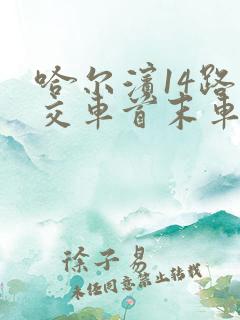 哈尔滨14路
交车首末车
徐子易
未经同意禁止转载